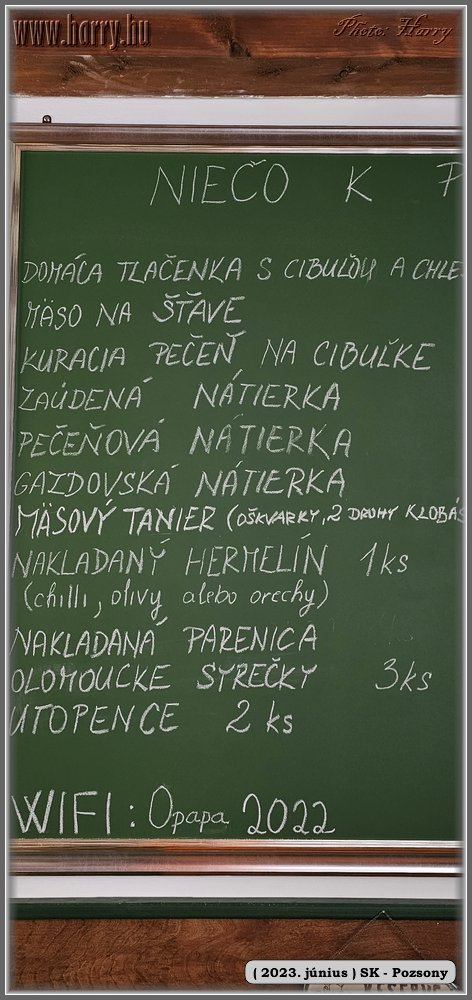 www.harry.hu
Photo: Harry
NIEČO K P
DOMÁCA TLAČENKA S CIBUĽOU A CHLE
MÄSO NA ŠŤAVE
KURACIA PEČEŇ NA CIBUĽKE
ZAÚDENÁ NÁTIERKA
PEČEŇOVÁ NÁTIERKA
GAZDOVSKÁ NÁTIERKA
MÄSOVÝ TANIER (OŠKVARKY, 2 DRUHY KLOBÁS
NAKLADANÝ HERMELÍN 1ks
(chilli, olivy alebo orechy)
NAKLADANÁ PARENICA
OLOMOUCKE SYREČKY 3ks
UTOPENCE 2 ks
WIFI: Opapa 2022
( 2023. június ) SK - Pozsony